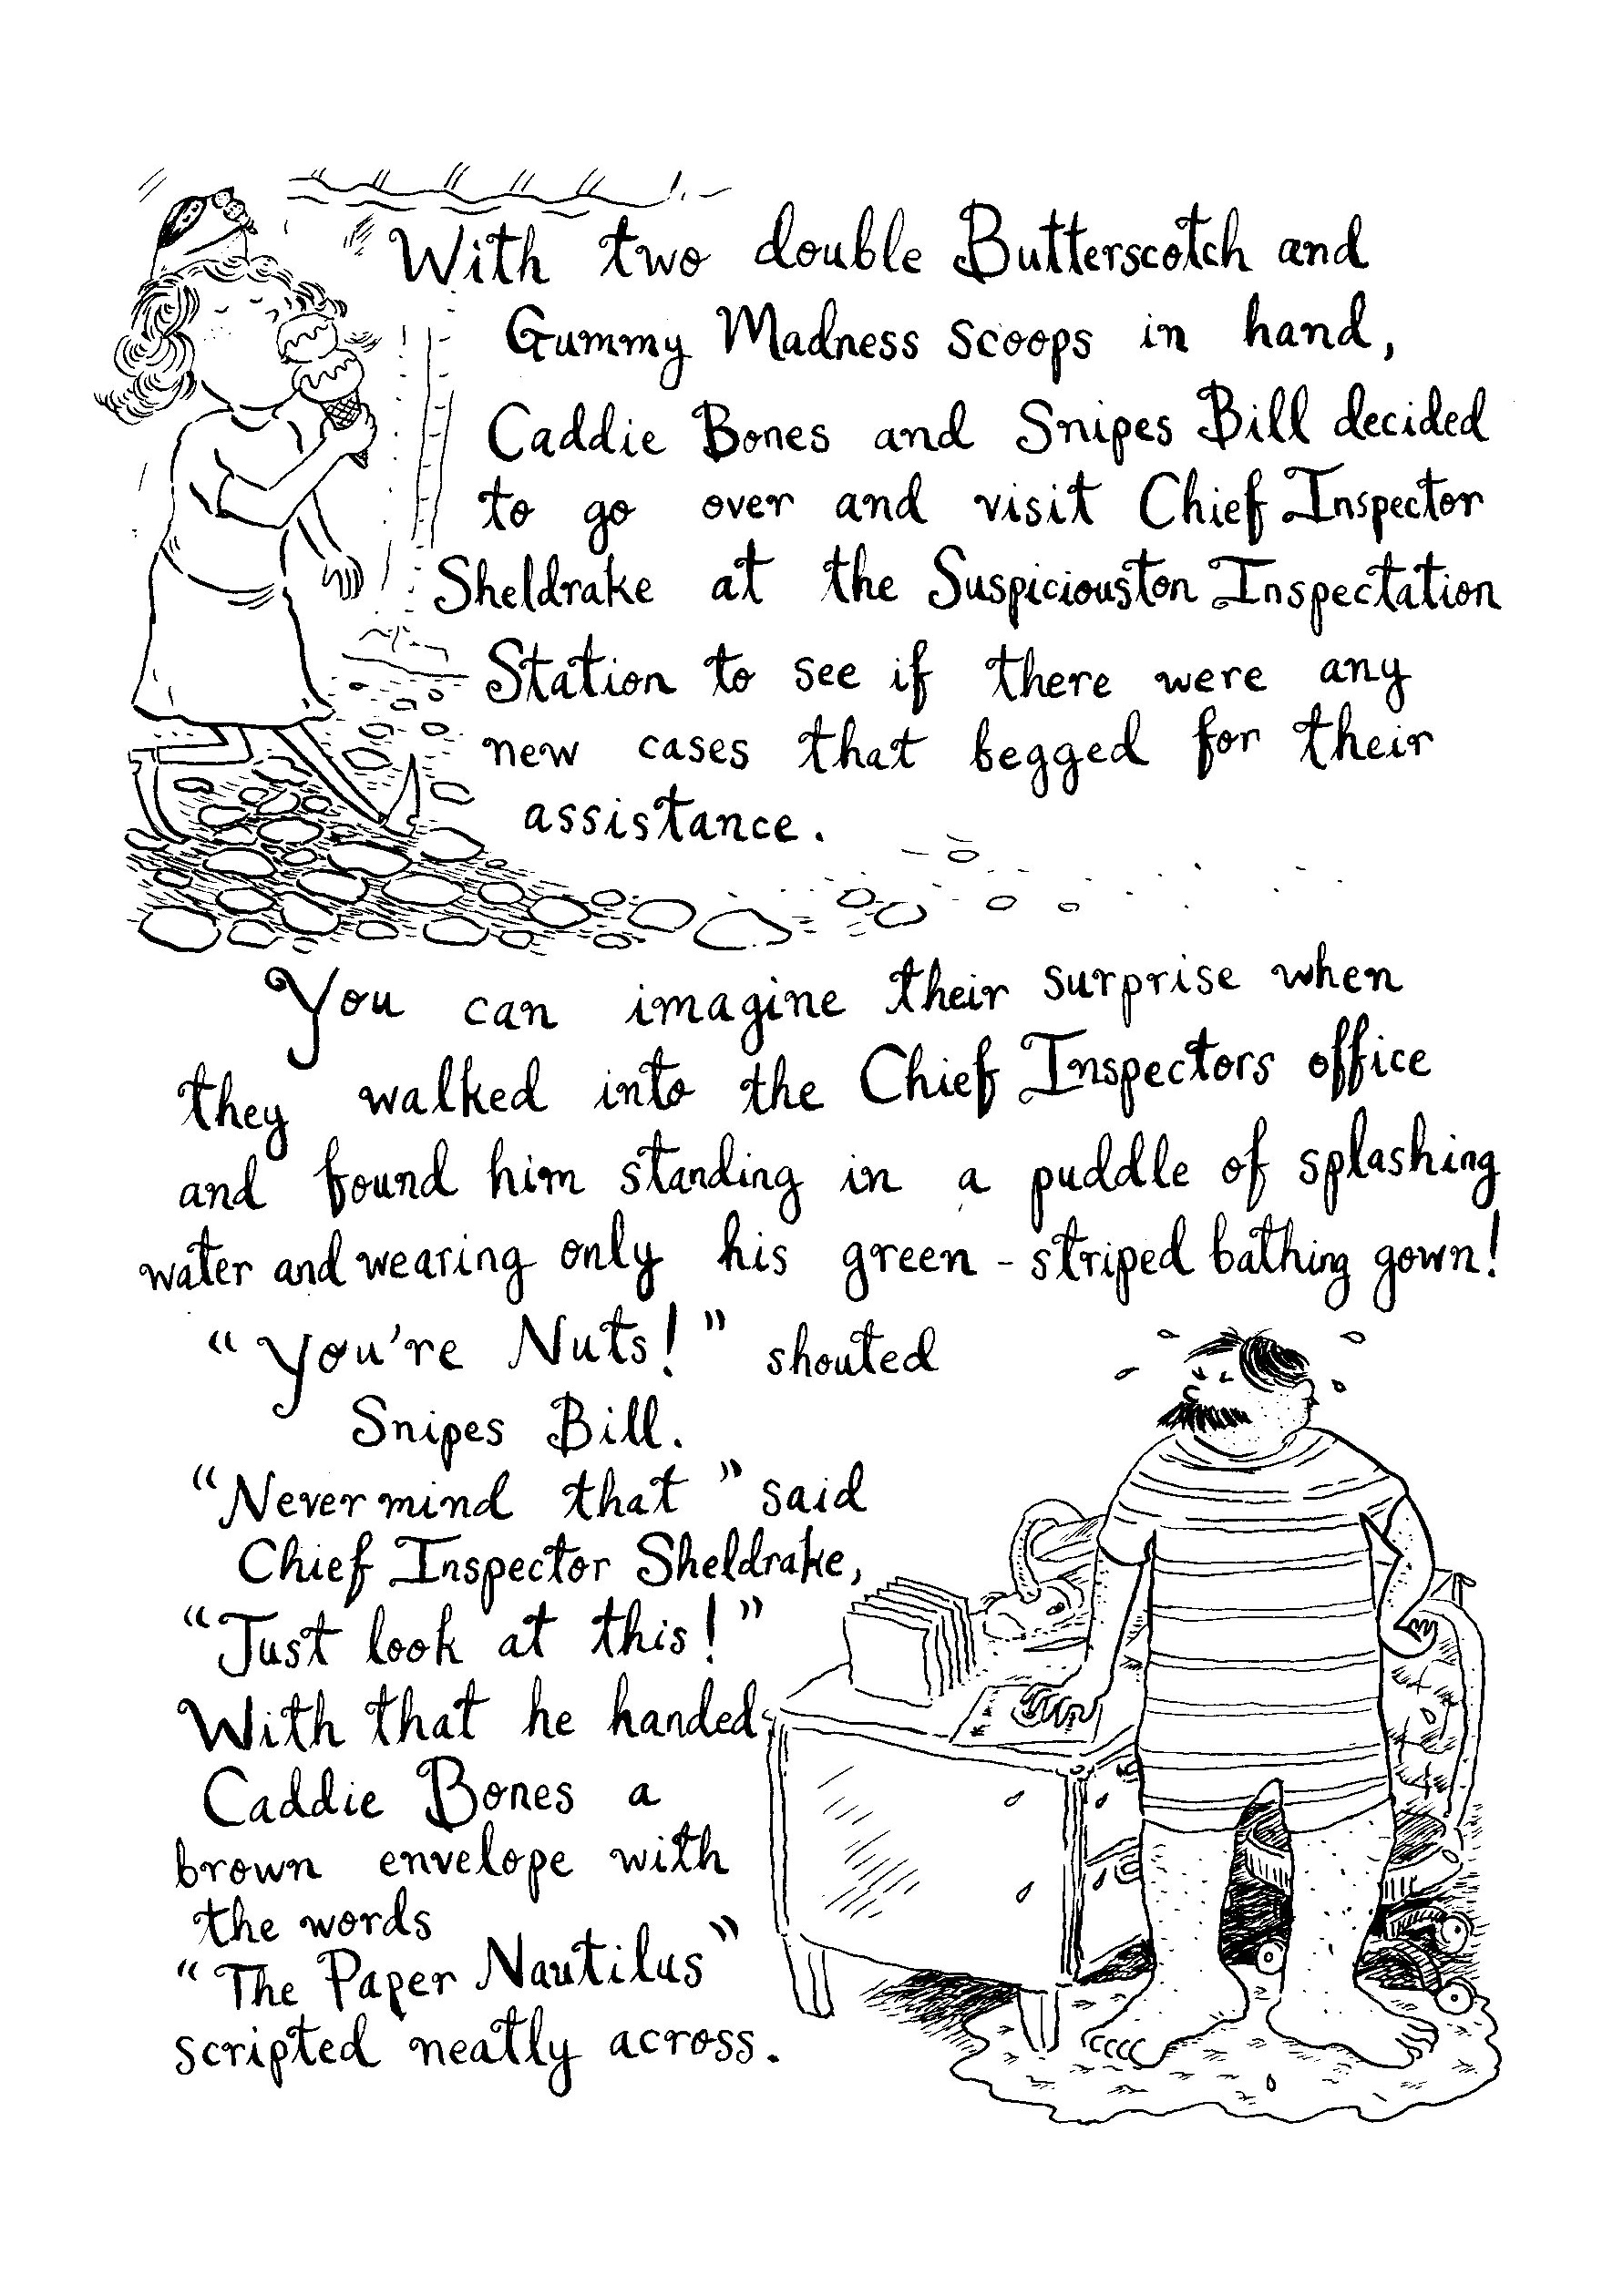 With two double Butterscotch and
Gummy Madness scoops in hand,
Caddie Bones and Snipes Bill decided
to go over and visit Chief Inspector
Sheldrake at the Suspiciouston Inspectation
Station to see if there were any
new cases that begged for their
assistance.
You can imagine their surprise when
they walked into the Chief Inspectors office
and found him standing in a puddle of splashing
water and wearing only his green-striped bathing gown!
“You're Nuts!” shouted
Snipes Bill.
“Never mind that” said
Chief Inspector Sheldrake,
“Just look at this!”
With that he handed
Caddie Bones a
brown envelope with
the words
“The Paper Nautilus”
scripted neatly across.